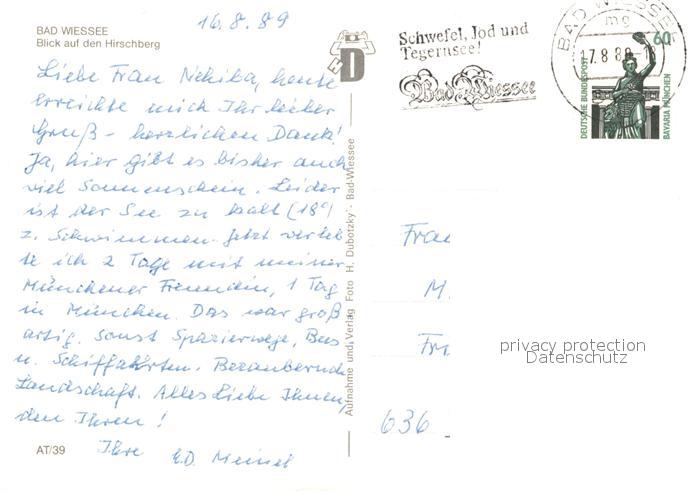 16.8.89
BAD WIESSEE
Blick auf den Hirschberg
Liebe Frau Nekika, heute
erreichte mich Ihr lieber
Gruß - herzlichen Dank!
Ja, hier gibt es bisher auch
viel Sonnenschein. Leider
ist der See zu kalt (18°)
z. Schwimmen. Jetzt verleb
te ich 2 Tage mit meiner
Münchener Freundin, 1 Tag
in München. Das war groß
artig. Sonst Spazierwege, Bus
u. Schiffahrten. Bezaubernde
Landschaft. Alles Liebe Ihnen,
den Ihren!
Ihre E.D. Meinel
AT/39
Aufnahme und Verlag Foto H. Dubotzky - Bad-Wiessee
D
Schwefel, Jod und
Tegernsee!
Bad Wiessee
BAD WIESSEE
mg
17.8.89
60
DEUTSCHE BUNDESPOST
BAVARIA MÜNCHEN
Frau
M.
Fr
636
privacy protection
Datenschutz